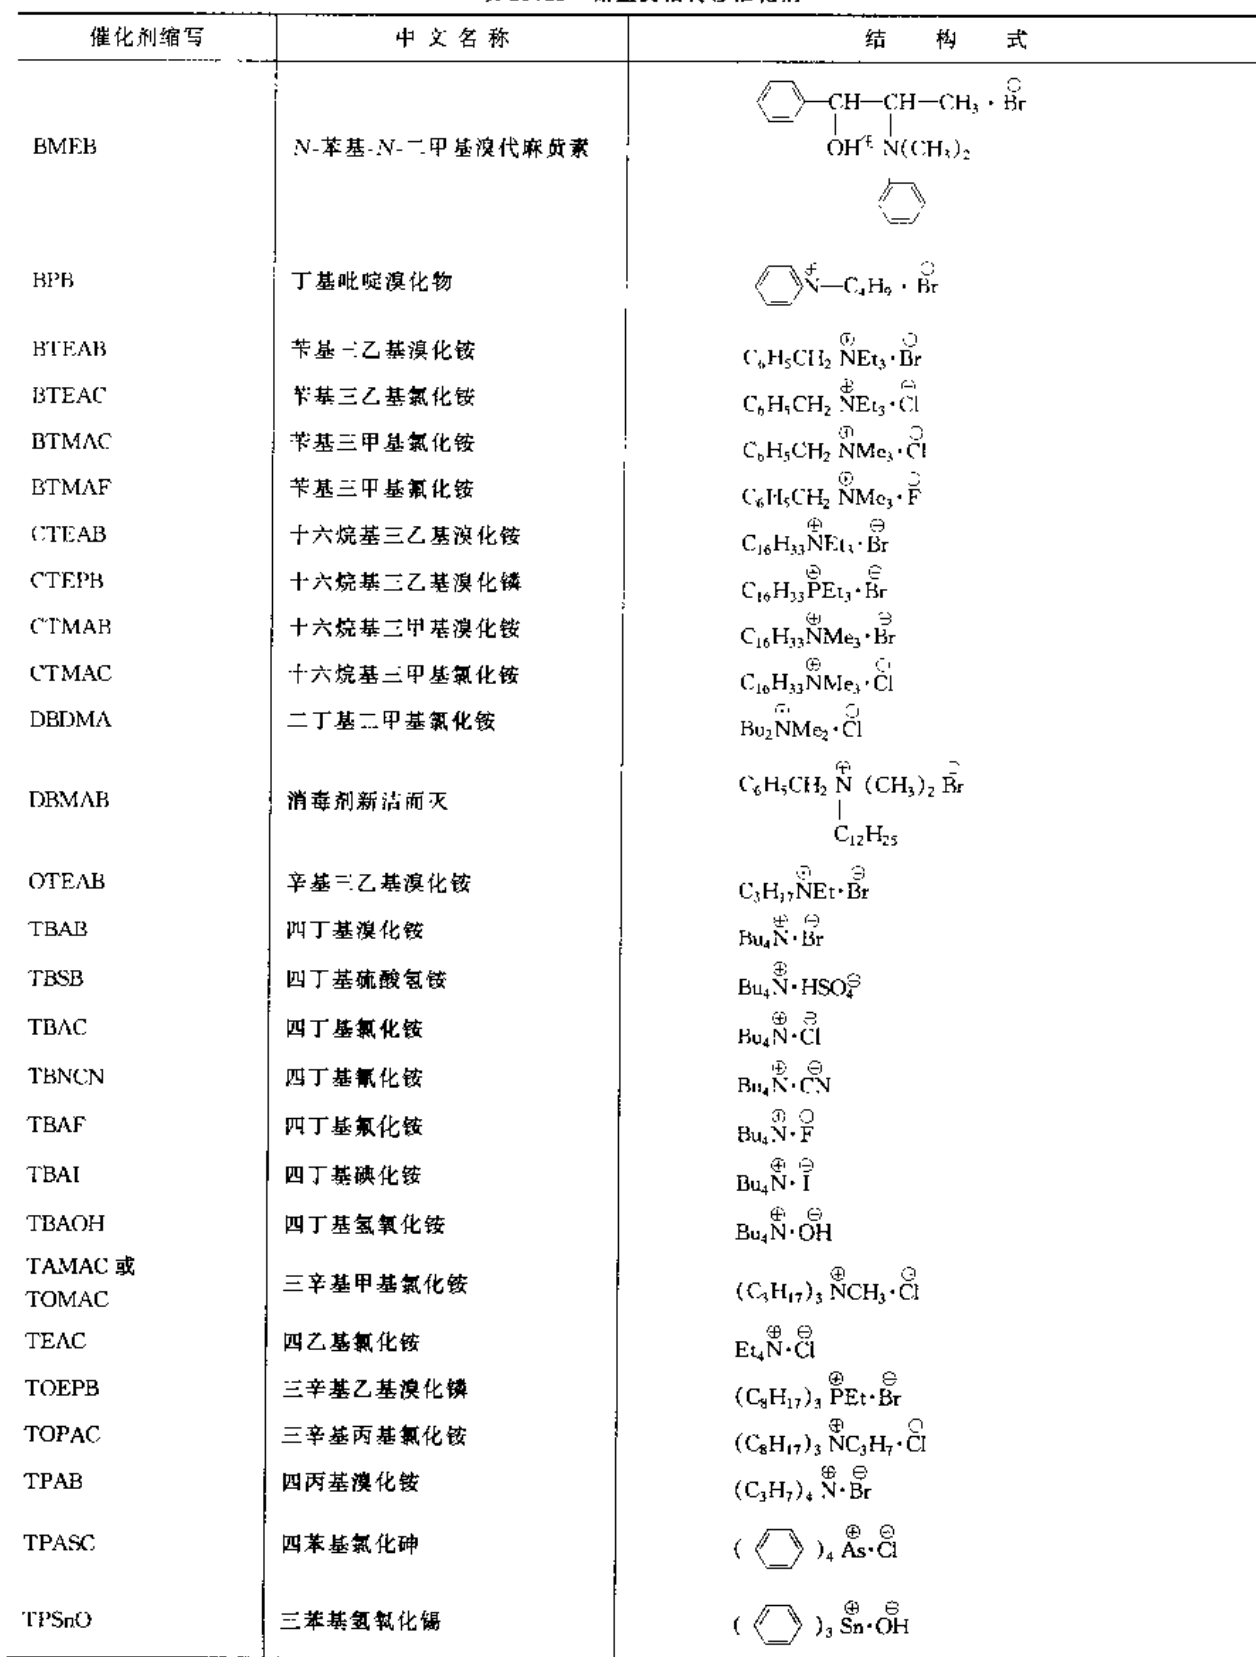 催化剂缩写 中文名称 结构式
BMEB N-苯基-N-二甲基溴代麻黄素 CH—CH—CH₃·Br⊖
OH⊕ N(CH₃)₂
BPB 丁基吡啶溴化物 N⁺—C₄H₉·Br⊖
BTEAB 苄基三乙基溴化铵 C₆H₅CH₂N⊕Et₃·Br⊖
BTEAC 苄基三乙基氯化铵 C₆H₅CH₂N⊕Et₃·Cl⊖
BTMAC 苄基三甲基氯化铵 C₆H₅CH₂N⊕Me₃·Cl⊖
BTMAF 苄基三甲基氟化铵 C₆H₅CH₂N⊕Me₃·F⊖
CTEAB 十六烷基三乙基溴化铵 C₁₆H₃₃N⊕Et₃·Br⊖
CTEPB 十六烷基三乙基溴化鏻 C₁₆H₃₃P⊕Et₃·Br⊖
CTMAB 十六烷基三甲基溴化铵 C₁₆H₃₃N⊕Me₃·Br⊖
CTMAC 十六烷基三甲基氯化铵 C₁₆H₃₃N⊕Me₃·Cl⊖
DBDMA 二丁基二甲基氯化铵 Bu₂N⊕Me₂·Cl⊖
DBMAB 消毒剂新洁而灭 C₆H₅CH₂N⊕(CH₃)₂Br⊖
C₁₂H₂₅
OTEAB 辛基三乙基溴化铵 C₃H₁₇N⊕Et·Br⊖
TBAB 四丁基溴化铵 Bu₄N⊕·Br⊖
TBSB 四丁基硫酸氢铵 Bu₄N⊕·HSO₄⊖
TBAC 四丁基氯化铵 Bu₄N⊕·Cl⊖
TBNCN 四丁基氰化铵 Bu₄N⊕·CN⊖
TBAF 四丁基氟化铵 Bu₄N⊕·F⊖
TBAI 四丁基碘化铵 Bu₄N⊕·I⊖
TBAOH 四丁基氢氧化铵 Bu₄N⊕·OH⊖
TAMAC 或
TOMAC 三辛基甲基氯化铵 (C₃H₁₇)₃N⊕CH₃·Cl⊖
TEAC 四乙基氯化铵 Et₄N⊕·Cl⊖
TOEPB 三辛基乙基溴化鏻 (C₈H₁₇)₃P⊕Et·Br⊖
TOPAC 三辛基丙基氯化铵 (C₈H₁₇)₃N⊕C₃H₇·Cl⊖
TPAB 四丙基溴化铵 (C₃H₇)₄N⊕·Br⊖
TPASC 四苯基氯化砷 ( )₄As⊕·Cl⊖
TPSnO 三苯基氢氧化锡 ( )₃Sn⊕·OH⊖